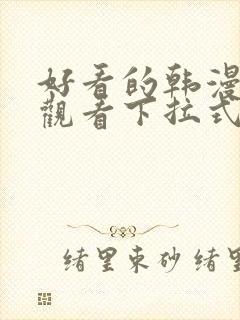 好看的韩漫
觀看下拉式
绪里束砂 绪里